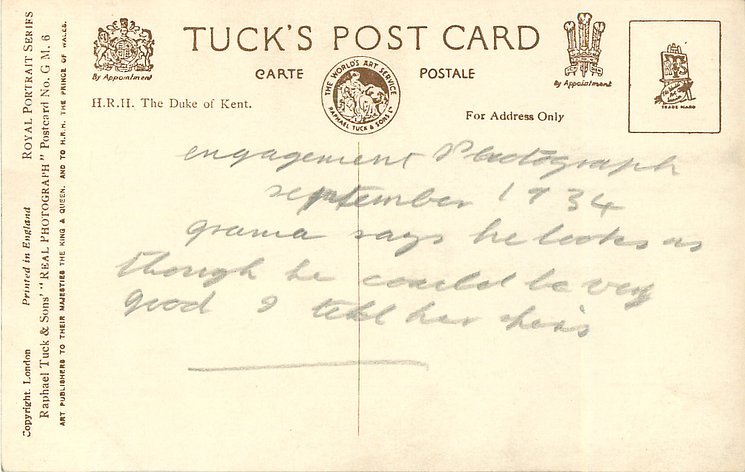 TUCK'S POST CARD
CARTE POSTALE
By Appointment
THE WORLD'S ART SERVICE
RAPHAEL TUCK & SONS LD
By Appointment
TRADE MARK
H.R.H. The Duke of Kent.
For Address Only
engagement Photograph
september 1934
grama says he looks as
though he could be very
good I tell her he is
Copyright. London Printed in England ROYAL PORTRAIT SERIES
Raphael Tuck & Sons' "REAL PHOTOGRAPH" Postcard No. G M. 6
ART PUBLISHERS TO THEIR MAJESTIES THE KING & QUEEN, AND TO H.R.H. THE PRINCE OF WALES.